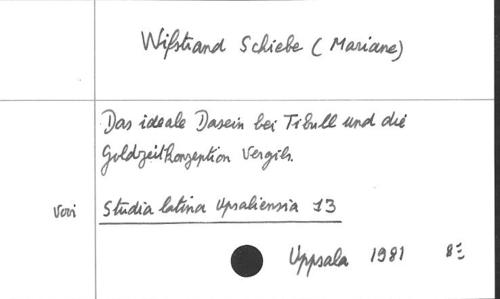 Wifstrand Schiebe (Mariane)
Das ideale Dasein bei Tibull und die
Goldzeitkonzeption Vergils.
Studia latina Upsaliensia 13
Uppsala 1981 8º